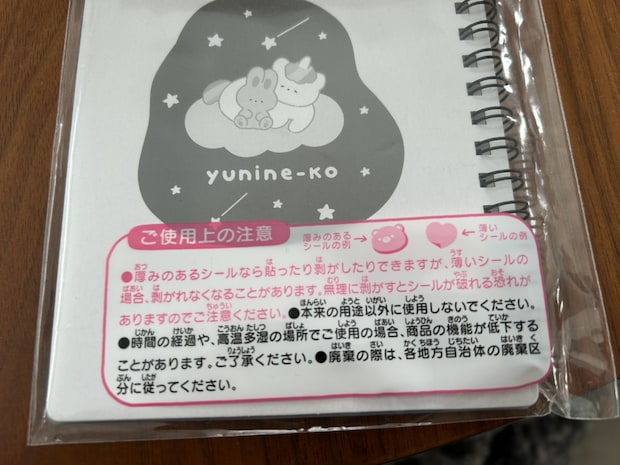 yunine-ko
ご使用上の注意
厚みのある
シールの例
薄い
シールの例
●厚みのあるシールなら貼ったり剥がしたりできますが、薄いシールの
場合、剥がれなくなることがあります。無理に剥がすとシールが破れる恐れが
ありますのでご注意ください。●本来の用途以外に使用しないでください。
●時間の経過や、高温多湿の場所でご使用の場合、商品の機能が低下する
ことがあります。ご了承ください。●廃棄の際は、各地方自治体の廃棄区
分に従ってください。